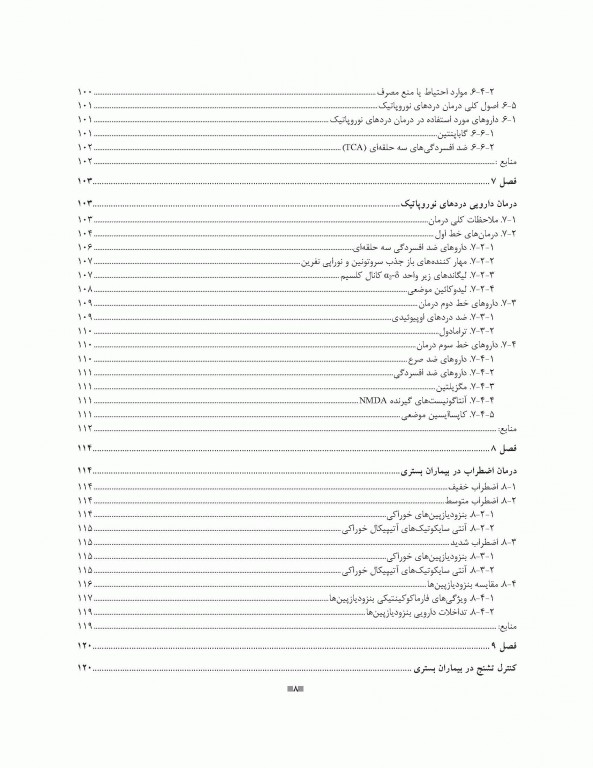 ۶-۴-۲. موارد احتیاط یا منع مصرف ۱۰۰
۶-۵. اصول کلی درمان دردهای نوروپاتیک ۱۰۱
۶-۱. داروهای مورد استفاده در درمان دردهای نوروپاتیک ۱۰۱
۶-۶-۱. گاباپنتین ۱۰۱
۶-۶-۲. ضد افسردگی‌های سه حلقه‌ای (TCA) ۱۰۲
منابع : ۱۰۲
فصل ۷ ۱۰۳
درمان دارویی دردهای نوروپاتیک ۱۰۳
۷-۱. ملاحظات کلی درمان ۱۰۳
۷-۲. درمان‌های خط اول ۱۰۴
۷-۲-۱. داروهای ضد افسردگی سه حلقه‌ای ۱۰۶
۷-۲-۲. مهار کننده‌های باز جذب سروتونین و نوراپی نفرین ۱۰۷
۷-۲-۳. لیگاندهای زیر واحد α₂-δ کانال کلسیم ۱۰۷
۷-۲-۴. لیدوکائین موضعی ۱۰۸
۷-۳. داروهای خط دوم درمان ۱۰۹
۷-۳-۱. ضد دردهای اوپیوئیدی ۱۰۹
۷-۳-۲. ترامادول ۱۱۰
۷-۴. داروهای خط سوم درمان ۱۱۰
۷-۴-۱. داروهای ضد صرع ۱۱۰
۷-۴-۲. داروهای ضد افسردگی ۱۱۱
۷-۴-۳. مگزیلتین ۱۱۱
۷-۴-۴. آنتاگونیست‌های گیرنده NMDA ۱۱۱
۷-۴-۵. کاپساایسین موضعی ۱۱۱
منابع: ۱۱۲
فصل ۸ ۱۱۴
درمان اضطراب در بیماران بستری ۱۱۴
۸-۱. اضطراب خفیف ۱۱۴
۸-۲. اضطراب متوسط ۱۱۴
۸-۲-۱. بنزودیازپین‌های خوراکی ۱۱۴
۸-۲-۲. آنتی سایکوتیک‌های آتیپیکال خوراکی ۱۱۵
۸-۳. اضطراب شدید ۱۱۵
۸-۳-۱. بنزودیازپین‌های خوراکی ۱۱۵
۸-۳-۲. آنتی سایکوتیک‌های آتیپیکال خوراکی ۱۱۵
۸-۴. مقایسه بنزودیازپین‌ها ۱۱۶
۸-۴-۱. ویژگی‌های فارماکوکینتیکی بنزودیازپین‌ها ۱۱۷
۸-۴-۲. تداخلات دارویی بنزودیازپین‌ها ۱۱۹
منابع: ۱۱۹
فصل ۹ ۱۲۰
کنترل تشنج در بیماران بستری ۱۲۰
۸